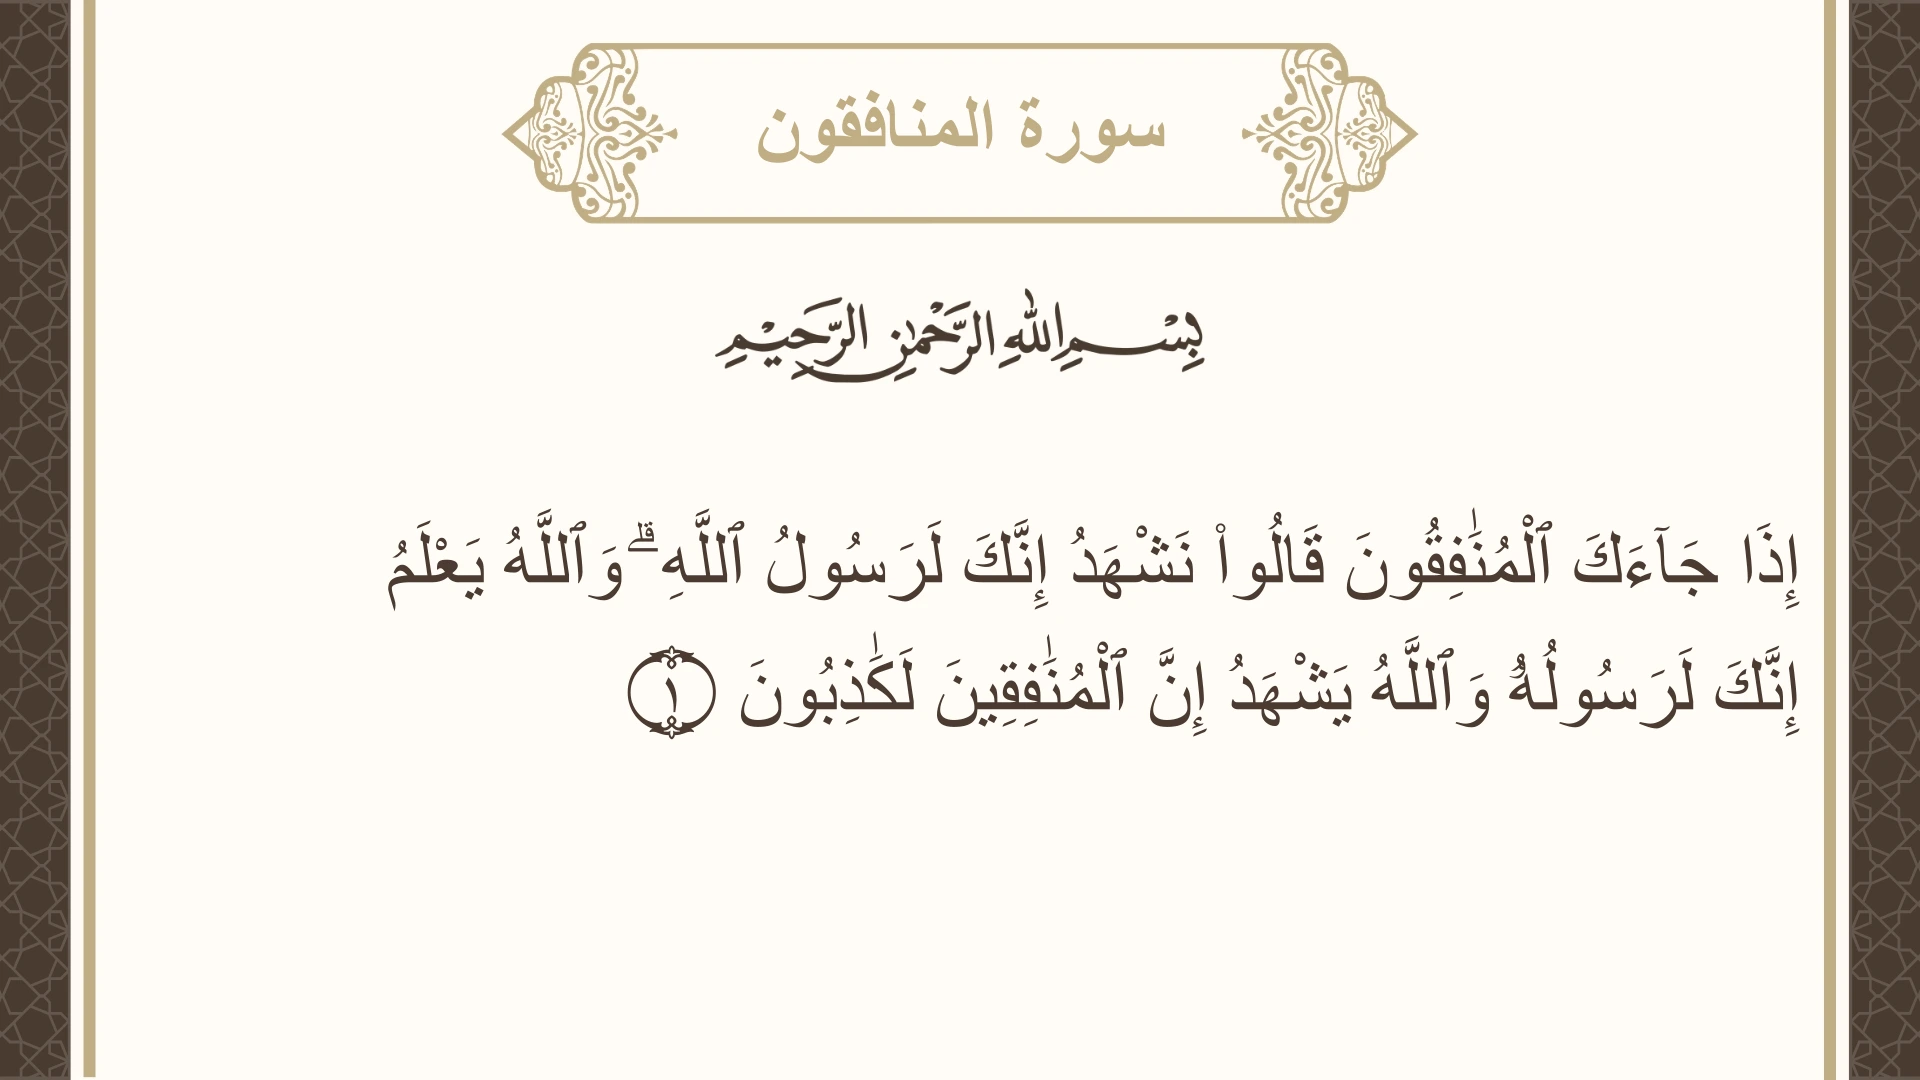 سورة المنافقون
بِسْمِ اللهِ الرَّحْمٰنِ الرَّحِيْمِ
إِذَا جَآءَكَ ٱلْمُنَٰفِقُونَ قَالُوا۟ نَشْهَدُ إِنَّكَ لَرَسُولُ ٱللَّهِ ۗ وَٱللَّهُ يَعْلَمُ
إِنَّكَ لَرَسُولُهُۥ وَٱللَّهُ يَشْهَدُ إِنَّ ٱلْمُنَٰفِقِينَ لَكَٰذِبُونَ ١